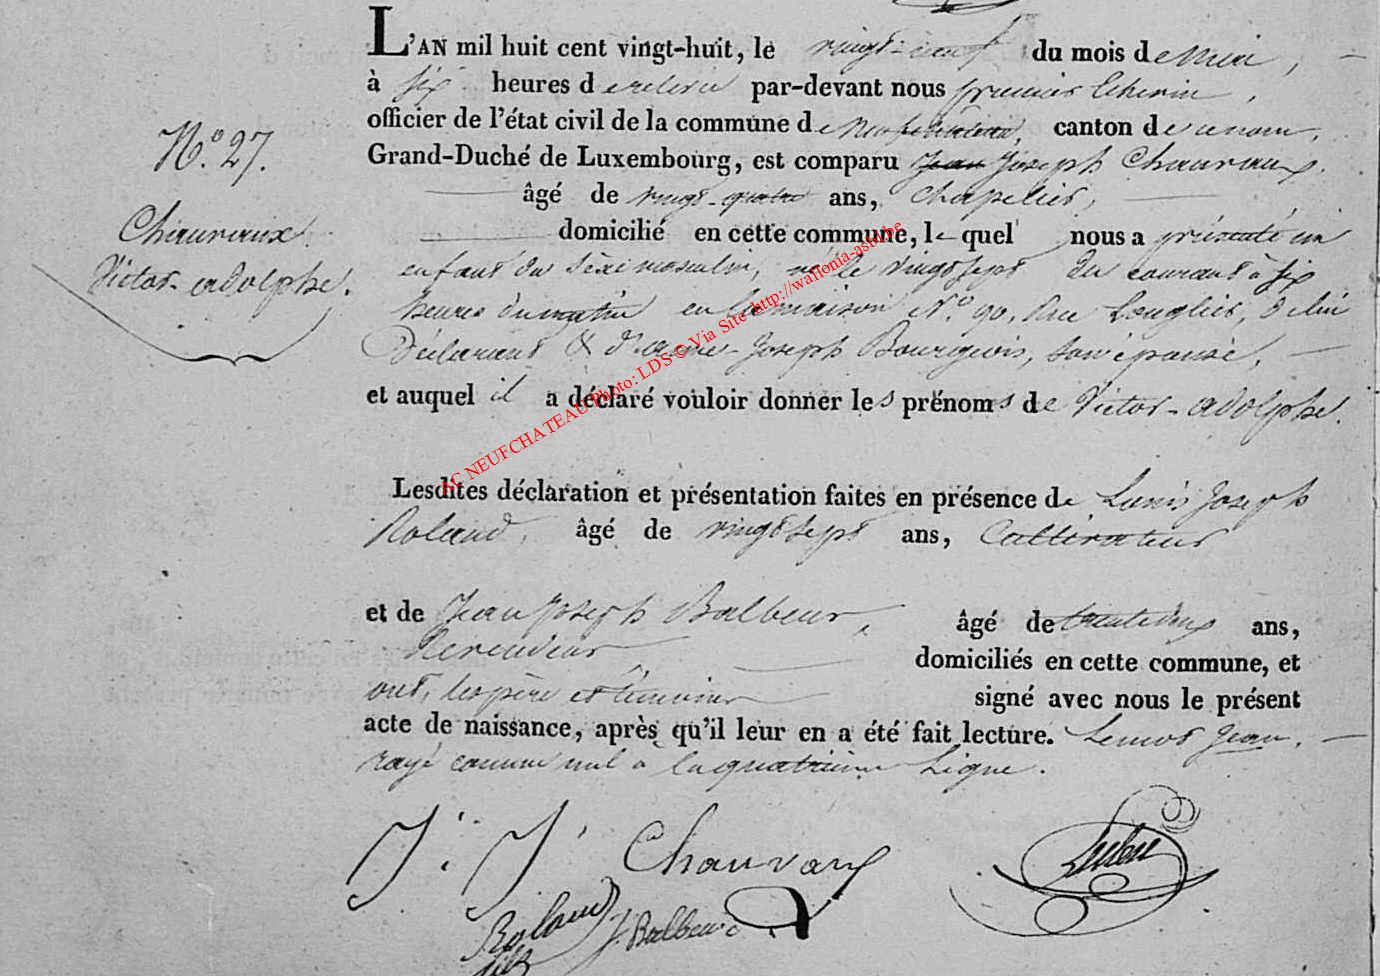 L'AN mil huit cent vingt-huit, le vingt-neuf du mois de Mai,
à six heures de relevée par-devant nous premier Echevin,
officier de l'état civil de la commune de Neufchateau, canton de ce nom,
Grand-Duché de Luxembourg, est comparu Jean Joseph Chauvaux.
N.° 27.
âgé de vingt-quatre ans, chapelier,
Chauvaux
Victor-adolphe.
domicilié en cette commune, le quel nous a présenté un
enfant du sexe masculin, né le vingt sept du courant à six
heures du matin en la maison N.° 90, rue Longlier, de lui
Déclarant & d'anne-Joseph Bourgeois, son épouse,
et auquel il a déclaré vouloir donner les prénoms de Victor-adolphe.
AC NEUFCHATEAU Photo: LDS © Via Site http://wallonia-asbl.be
Lesdites déclaration et présentation faites en présence de Louis Joseph
Roland, âgé de vingt sept ans, Cultivateur
et de Jean Joseph Balbeur, âgé de trente deux ans,
Revendeur domiciliés en cette commune, et
ont, les père et témoins signé avec nous le présent
acte de naissance, après qu'il leur en a été fait lecture. Le mot Jean,
rayé comme nul à la quatrième Ligne.
J. J. Chauvaux
Roland
J. Balbeur